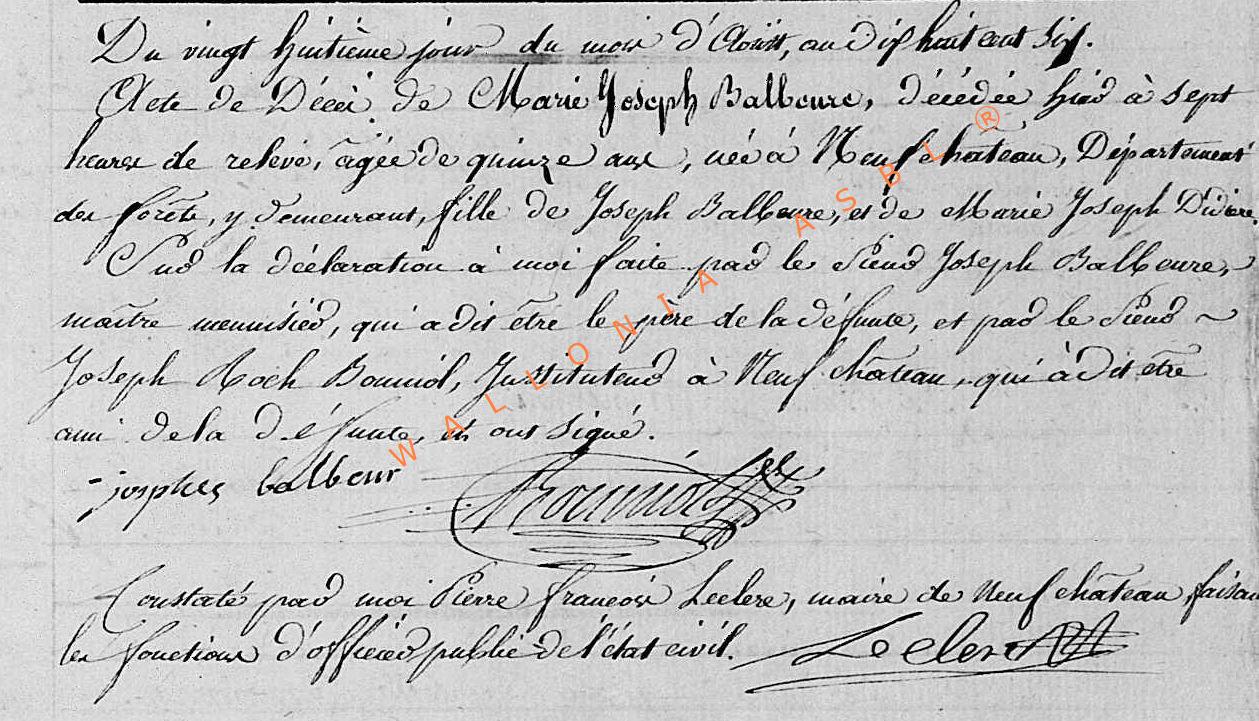 Du vingt huitième jour du mois d'Août, an dix huit cent six.
Acte de Décès de Marie Joseph Balbeure, décédée hier à sept
heures de relevé, âgée de quinze ans, née à Neufchâteau, Département
des forêts, y demeurant, fille de Joseph Balbeure, et de Marie Joseph Didière.
Sur la déclaration à moi faite par le Sieur Joseph Balbeure,
maître menuisier, qui a dit être le père de la défunte, et par le Sieur ~
Joseph Roch Bouniol, Instituteur à Neufchâteau, qui à dit être
ami de la défunte, et ont signé.
- josphes balbeur Bouniol
Constaté par moi Pierre françois Leclerc, maire de Neufchâteau, faisan
les fonctions d'officier public de l'état civil. Leclerc
WALLONIA ASBL ®